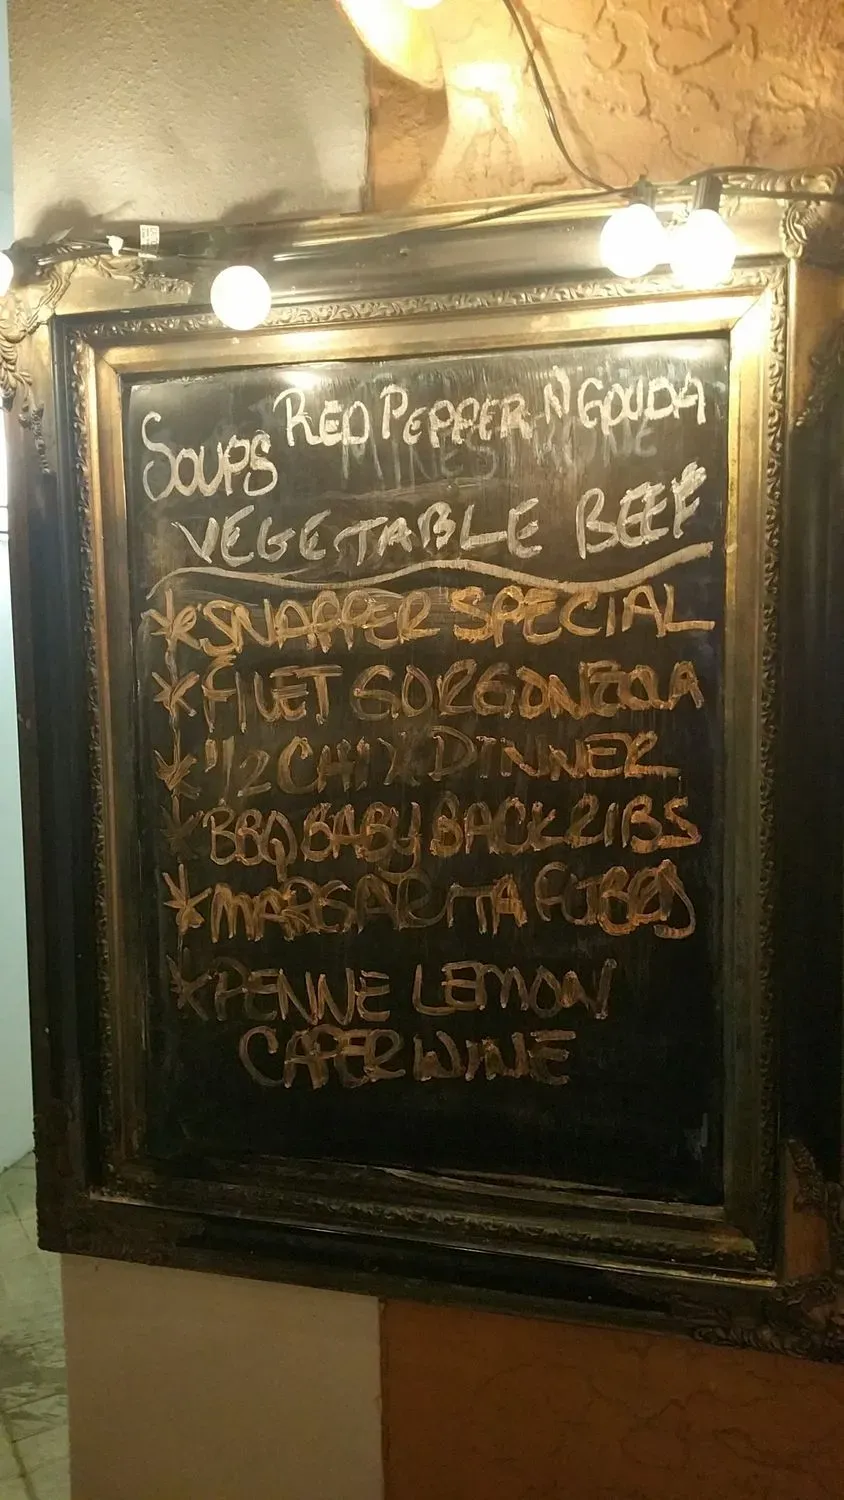 RED PEPPER N GOUDA
SOUPS
MINESTRONE
VEGETABLE BEEF
*SNAPPER SPECIAL
*FILET GORGONZOLA
*1/2 CHIX DINNER
*BBQ BABY BACK RIBS
*MARGARITA
*PENNE LEMON
CAPER WINE